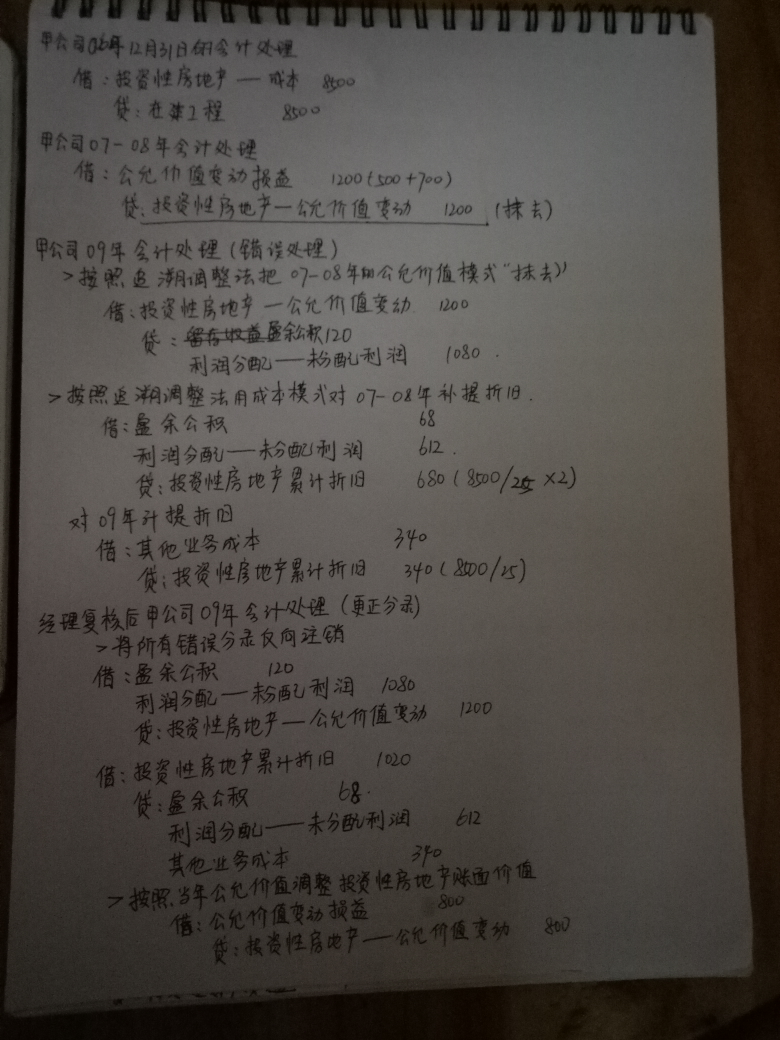 甲公司06年12月31日的会计处理
借：投资性房地产—成本 8500
贷：在建工程 8500
甲公司07-08年会计处理
借：公允价值变动损益 1200(500+700)
贷：投资性房地产—公允价值变动 1200 (抹去)
甲公司09年会计处理(错误处理)
>按照追溯调整法把07-08年的公允价值模式"抹去"
借：投资性房地产—公允价值变动 1200
贷：留存收益盈余公积120
利润分配——未分配利润 1080.
>按照追溯调整法用成本模式对07-08年补提折旧.
借：盈余公积 68
利润分配——未分配利润 612.
贷：投资性房地产累计折旧 680(8500/25×2)
对09年计提折旧
借：其他业务成本 340
贷：投资性房地产累计折旧 340(8500/25)
经理复核后甲公司09年会计处理(更正分录)
>将所有错误分录反向注销
借：盈余公积 120
利润分配——未分配利润 1080
贷：投资性房地产—公允价值变动 1200
借：投资性房地产累计折旧 1020
贷：盈余公积 68.
利润分配——未分配利润 612
其他业务成本 340
>按照当年公允价值调整投资性房地产账面价值
借：公允价值变动损益 800
贷：投资性房地产——公允价值变动 800